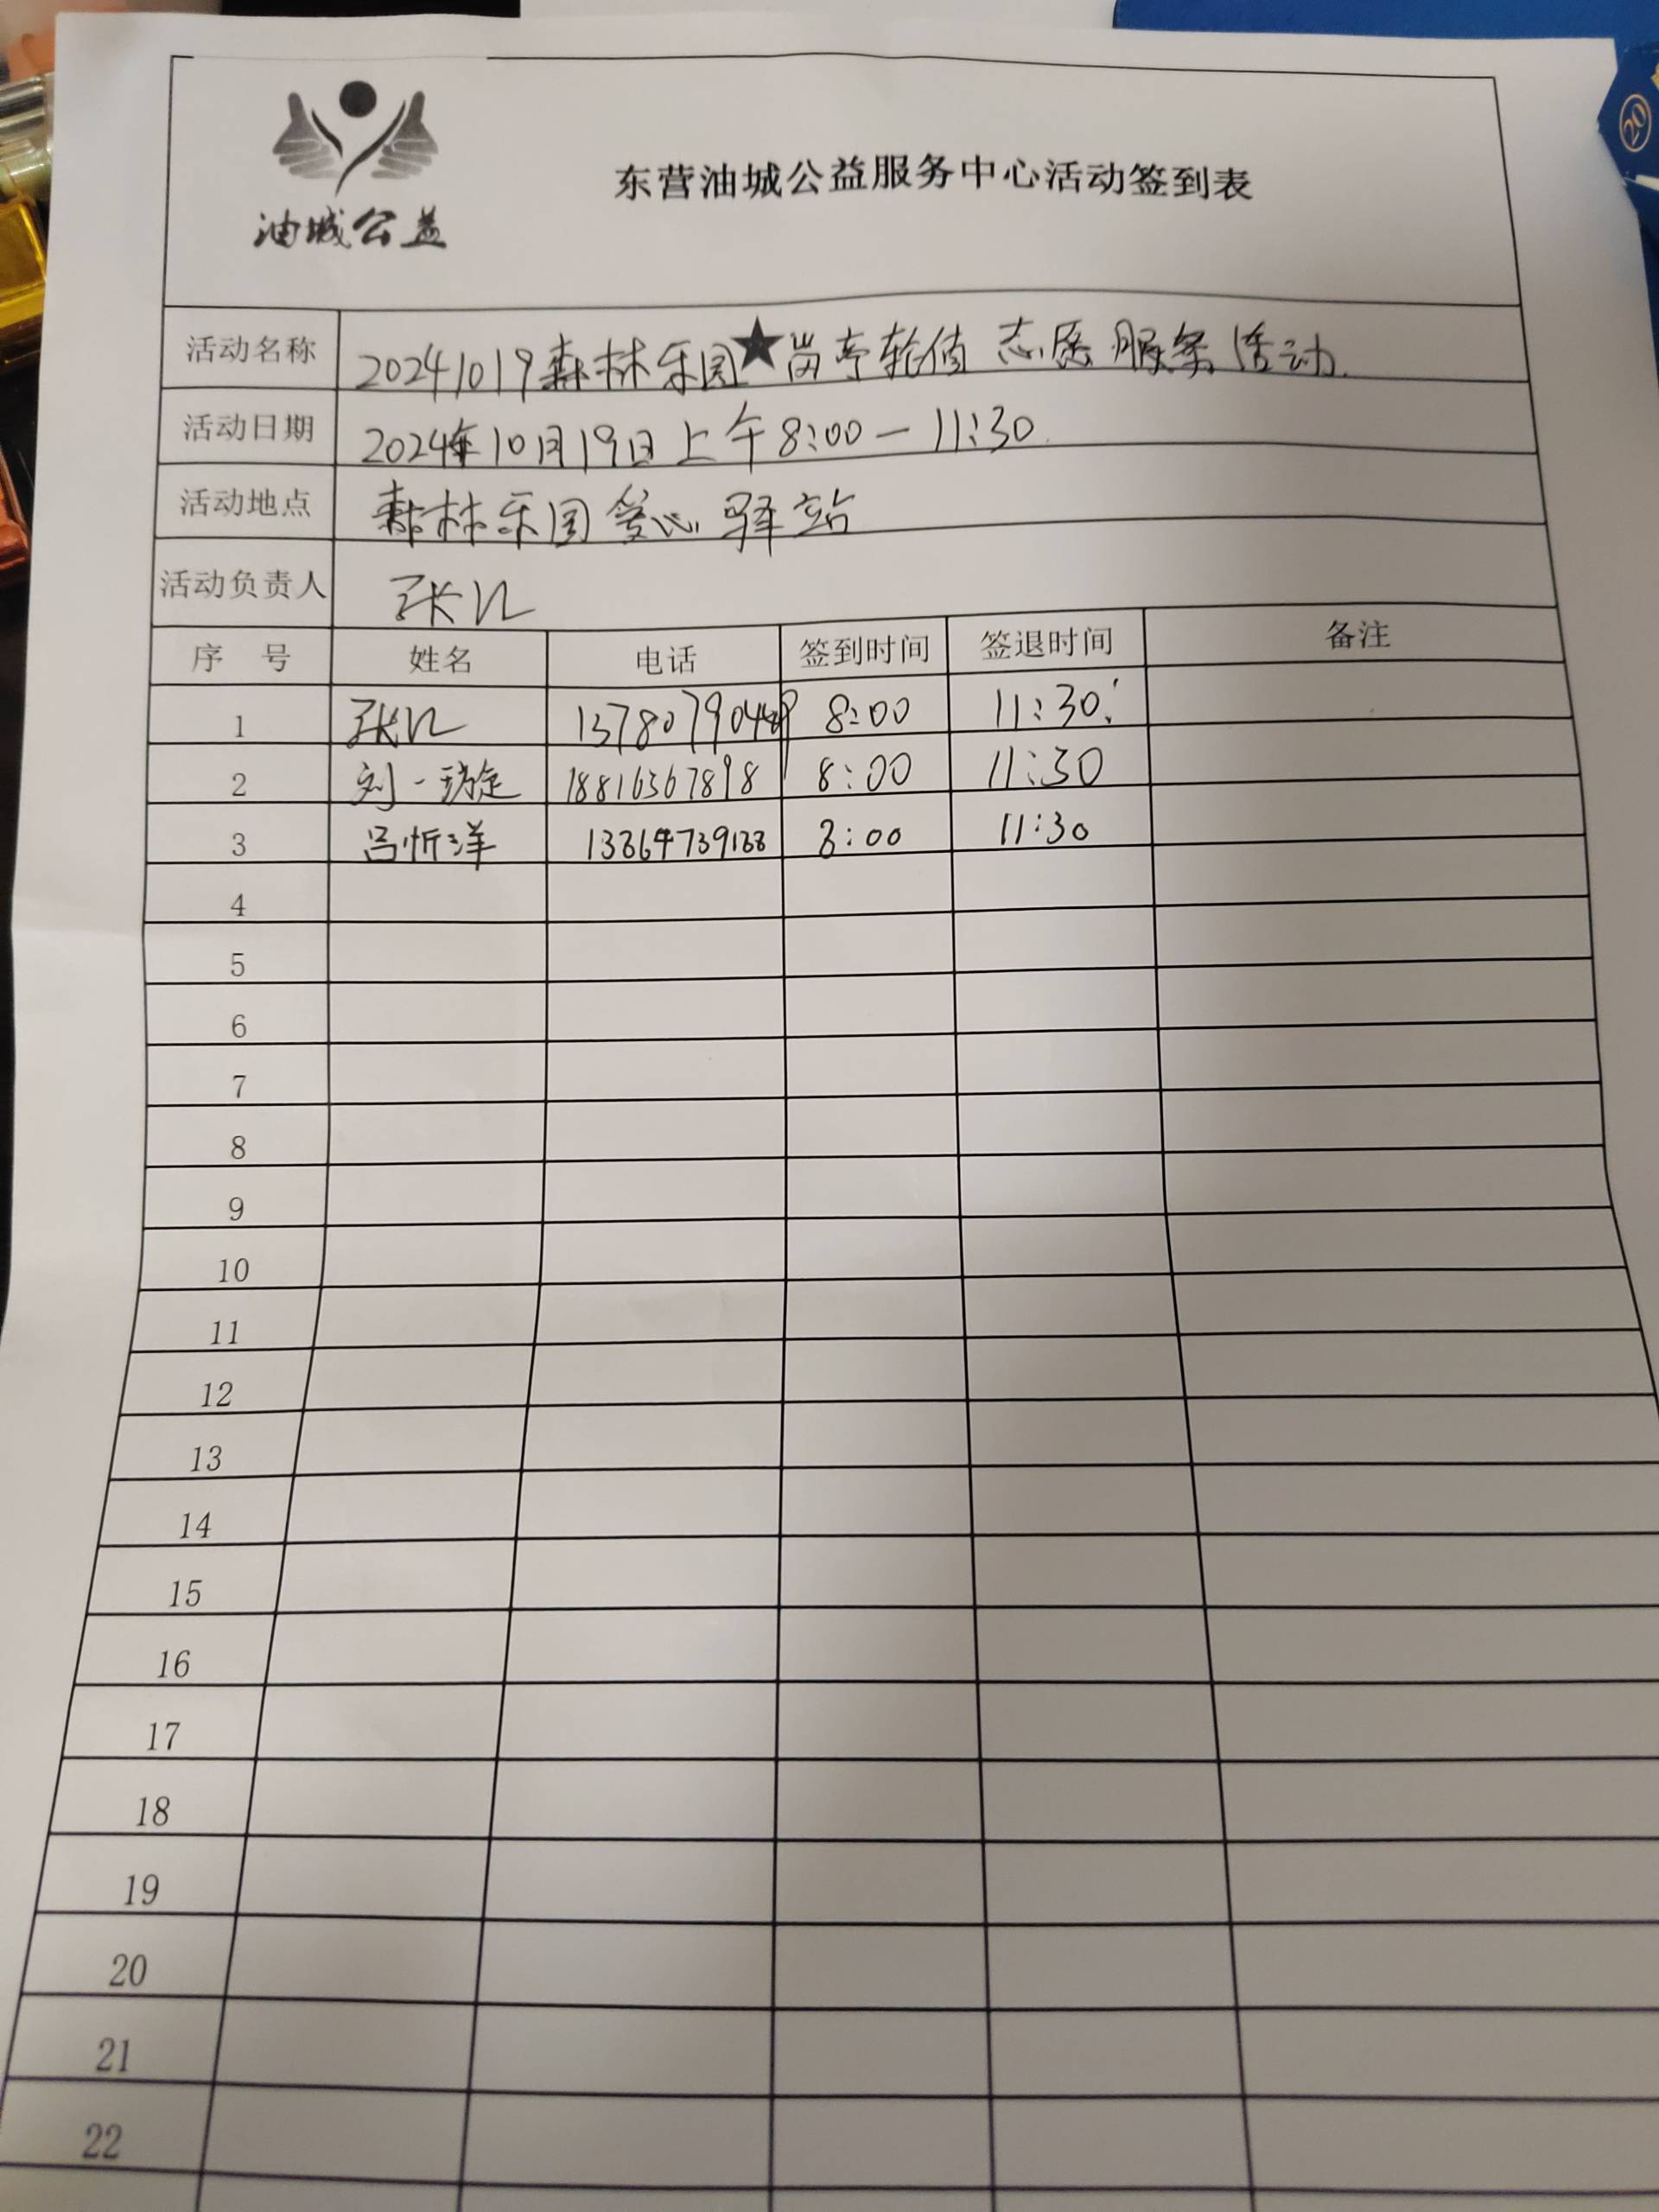 油城公益
东营油城公益服务中心活动签到表
活动名称 20241019森林乐园★岗亭轮值志愿服务活动
活动日期 2024年10月19日上午8:00-11:30
活动地点 森林乐园爱心驿站
活动负责人 张
序 号 姓名 电话 签到时间 签退时间 备注
1 张 8:00 11:30
2 刘一 18816367898 8:00 11:30
3 吕忻洋 8:00 11:30
4
5
6
7
8
9
10
11
12
13
14
15
16
17
18
19
20
21
22
20